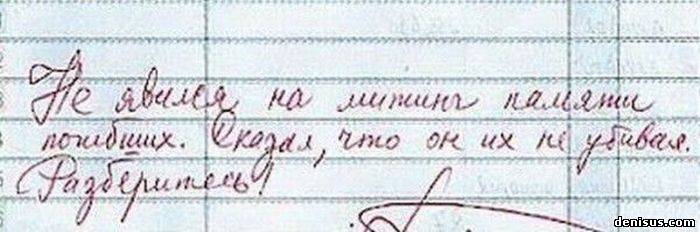 Не явился на митинг памяти
погибших. Сказал, что он их не убивал.
Разберитесь!
denisus.com